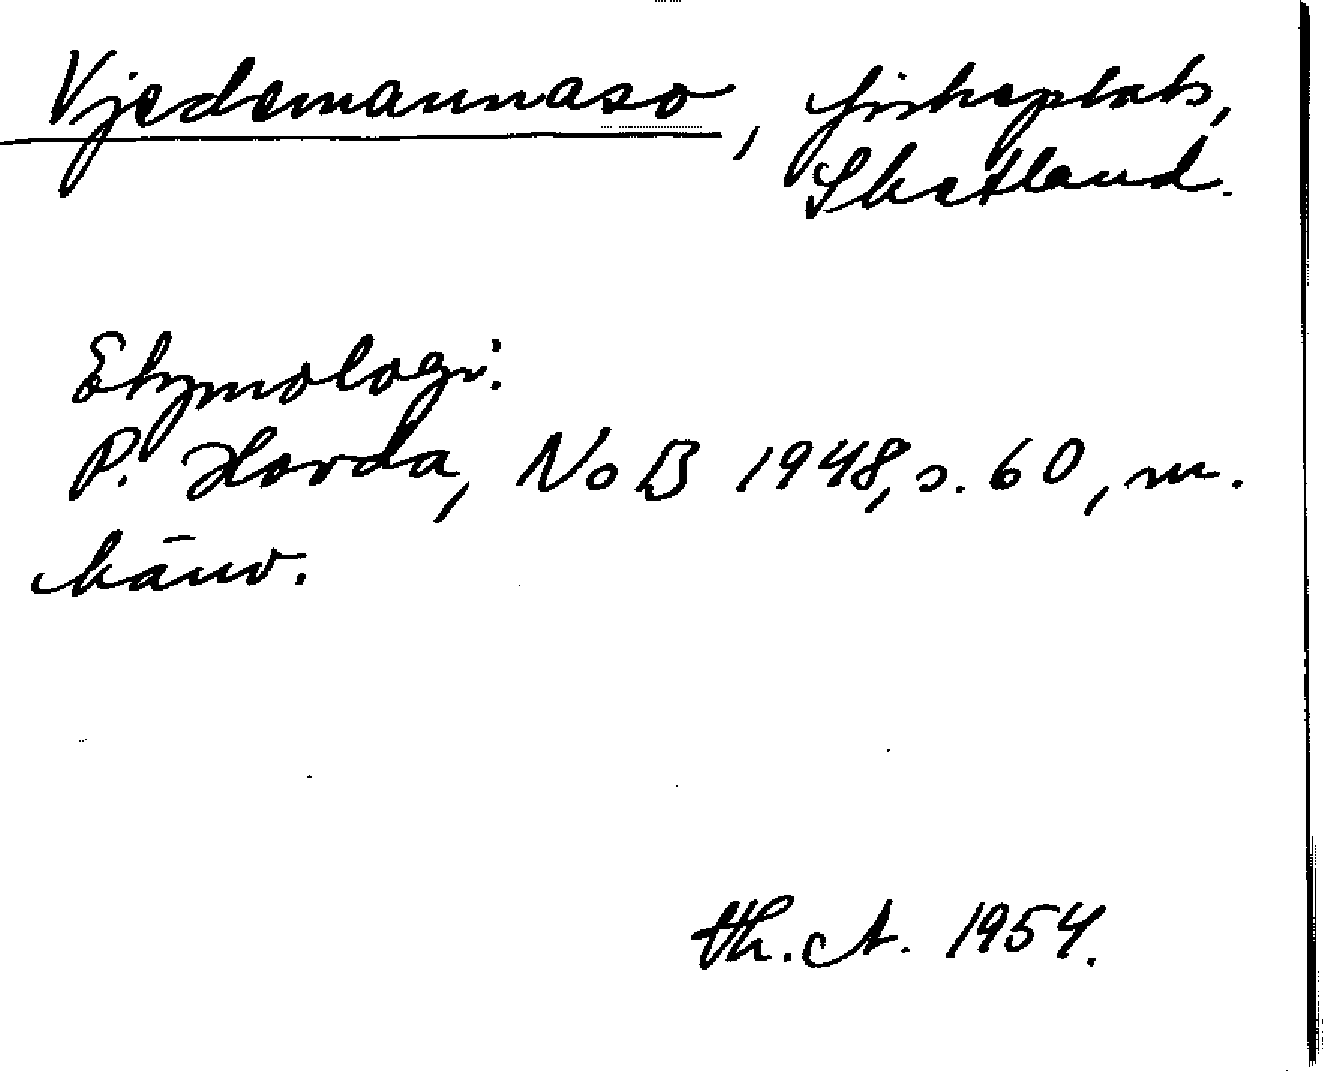 Vjedemannaso, fiskeplats,
Shetland.
Etymologi:
P. Hovda, NoB 1948, s. 60, m.
hänv.
Th. A. 1954.